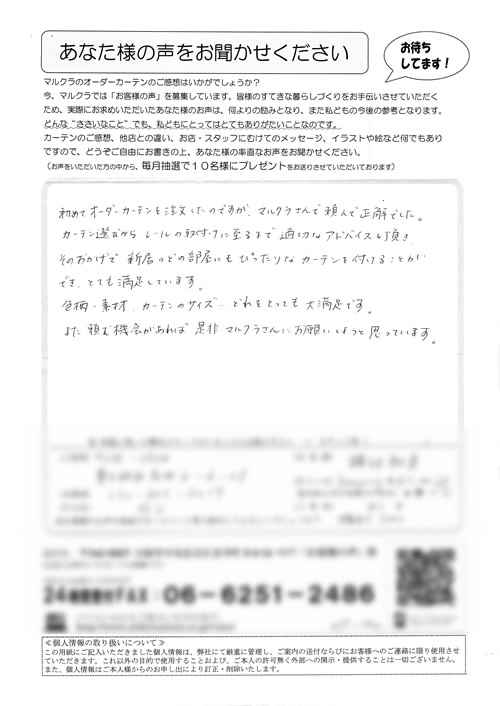 あなた様の声をお聞かせください
お待ち
してます！
マルクラのオーダーカーテンのご感想はいかがでしょうか？
今、マルクラでは「お客様の声」を募集しています。皆様のすてきな暮らしづくりをお手伝いさせていただく
ため、実際にお求めいただいたあなた様のお声は、何よりの励みとなり、また私どもの今後の参考となります。
どんな“ささいなこと”でも、私どもにとってはとてもありがたいことなのです。
カーテンのご感想、他店との違い、お店・スタッフにむけてのメッセージ、イラストや絵など何でもあり
ですので、どうぞご自由にお書きの上、あなた様の率直なお声をお聞かせください。
（お声をいただいた方の中から、毎月抽選で１０名様にプレゼントをお送りさせていただいております）
初めてオーダーカーテンを注文したのですが、マルクラさんで頼んで正解でした。
カーテン選びから レールの取付けに至るまで 適切なアドバイスを頂き
そのおかげで 新居のどの部屋にも ぴったりな カーテンを付けることが
でき、とても満足しています。
色柄・素材、カーテンのサイズ… どれをとっても 大満足です。
また 頼む機会があれば 是非 マルクラさんにお願いしようと 思っています。
24時間受付FAX：06-6251-2486
≪個人情報の取り扱いについて≫
この用紙にご記入いただきました個人情報は、弊社にて厳重に管理し、ご案内の送付ならびにお客様へのご連絡に限り使用させ
ていただきます。これ以外の目的で使用することおよび、ご本人の許可無く外部への開示・提供することは一切ございません。
また、個人情報はご本人様からのお申し出により訂正・削除いたします。